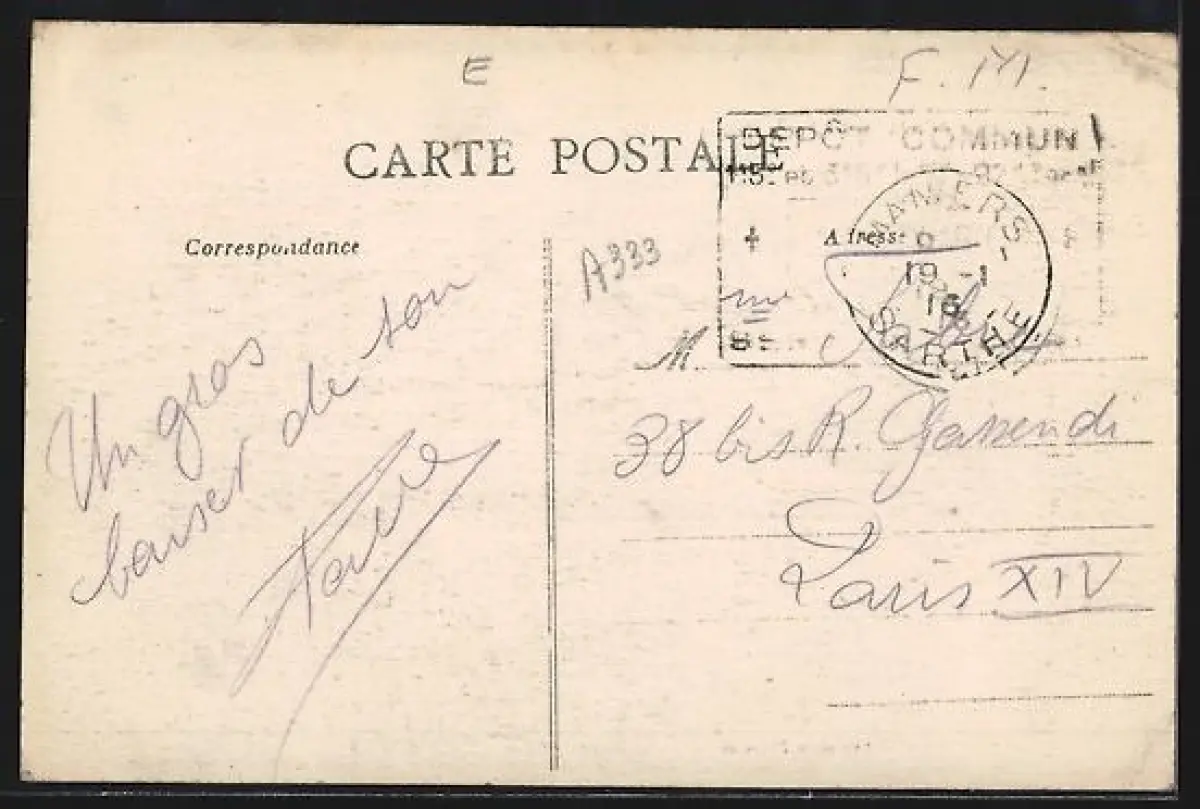 E
F. M.
CARTE POSTALE
DEPÔT COMMUN
115e et
Correspondance
Adresse
A333
MAMERS
19 -1
16
SARTHE
Un gros
baiser de ton
Mr
M.
38 bis R. Gassendi
Paris XIV